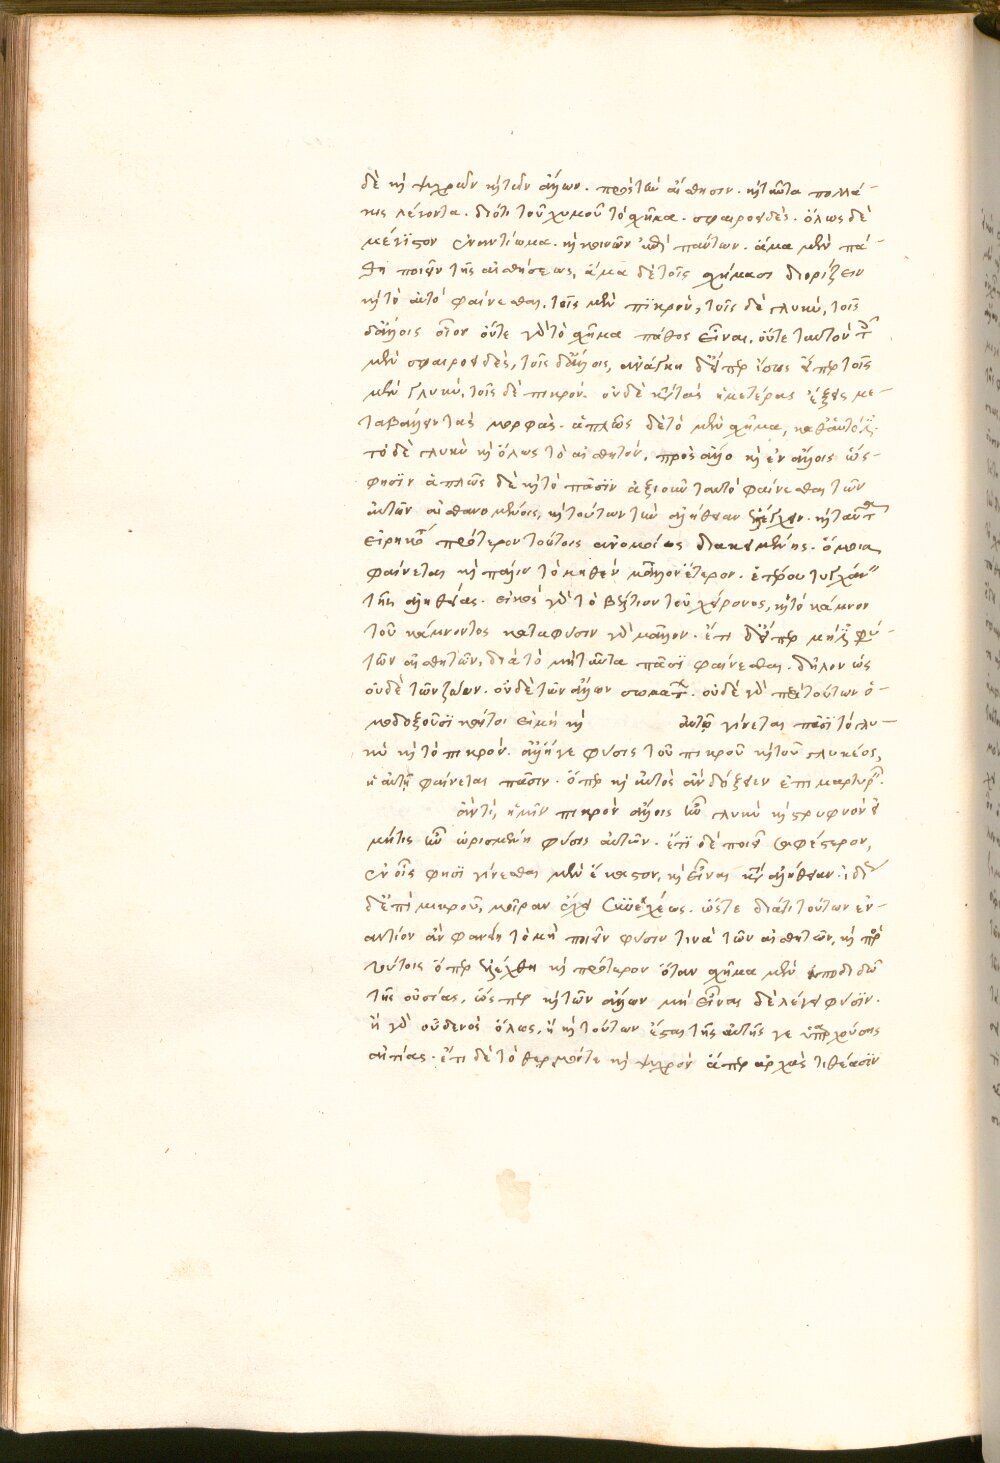 δὲ καὶ ψυχρὸν καὶ τῶν ἄλλων. πρὸς τὴν αἴσθησιν. καὶ ταῦτα πολλά-
κις λέγοντα. διότι τοῦ χυμοῦ τὸ σχῆμα. σφαιροειδές. ὅλως δὲ
μέγιστον ἐναντίωμα. καὶ κοινὸν ἐπὶ πάντων. ἅμα μὲν πά-
θη ποιεῖν τῆς αἰσθήσεως, ἅμα δὲ τοῖς σχήμασι διορίζειν
καὶ τὸ αὐτὸ φαίνεσθαι. τοῖς μὲν πικρόν, τοῖς δὲ γλυκύ, τοῖς
δ' ἄλλοις οἷον οὔτε γὰρ τὸ σχῆμα πάθος εἶναι. οὔτε ταὐτὸν
μὲν σφαιροειδές, τοῖς δ' ἄλλοις, ἀνάγκη δ' εἴπερ ἴσως εἴπερ τοῖς
μὲν γλυκύ. τοῖς δὲ πικρόν. οὐδὲ κατὰ τὰς ἡμετέρας ἕξεις με-
ταβάλλειν τὰς μορφάς. ἁπλῶς δὲ τὸ μὲν σχῆμα, καθ' αὑτό ἐστι.
τὸ δὲ γλυκὺ καὶ ὅλως τὸ αἰσθητόν. πρὸς ἄλλο καὶ ἐν ἄλλοις ὥς
φησὶν ἁπλῶς δὲ καὶ τὸ πᾶσιν ἀξιοῦν ταὐτὸ φαίνεσθαι τῶν
αὐτῶν αἰσθανομένοις, καὶ τούτων τὴν ἀλήθειαν ἐλέγχειν. καὶ ταῦτα
εἰρηκότα πρότερον τούτοις ἀνομοίως διακειμένοις. ὅμοια
φαίνεται καὶ πάλιν τὸ μηθὲν μᾶλλον ἕτερον. ἑτέρου τυγχάνειν
τῆς ἀληθείας. εἰκὸς γὰρ τὸ βέλτιον τοῦ χείρονος, καὶ τὸ κάμνον
τοῦ κάμνοντος κατὰ φύσιν γὰρ μᾶλλον. ἔτι δ' εἴπερ μή ἐστι φύ-
τῶν αἰσθητῶν, διὰ τὸ μὴ ταῦτα πᾶσι φαίνεσθαι. δῆλον ὡς
οὐδὲ τῶν ζώων. οὐδὲ τῶν ἄλλων σωμάτων. οὐδὲ γὰρ περὶ τούτων ὁ-
μοδοξοῦσι καίτοι εἰ μὴ καὶ αὐτῶν γίνεται πᾶσι τὸ γλυ-
κὺ καὶ τὸ πικρόν. ἀλλ' ἥ γε φύσις τοῦ πικροῦ καὶ τοῦ γλυκέος,
ἡ αὐτὴ φαίνεται πᾶσιν. ὅπερ καὶ αὐτὸς ἂν δόξειεν ἐπιμαρτυρεῖν.
ἀντι, ἡμῖν πικρὸν ἄλλοις ἦν γλυκὺ καὶ στρυφνὸν εἰ
μή τις ἦν ὡρισμένη φύσις αὐτῶν. ἔτι δὲ ποιεῖ σαφέστερον,
ἐν οἷς φησι γίνεσθαι μὲν ἕκαστον, καὶ εἶναι κατ' ἀλήθειαν. ἰδί
δ' ἐπὶ μικροῦ, μοῖραν ἔχει συνέσεως. ὥστε διά τι τούτων ἐν-
αντίον ἂν φανείη τὸ μὴ ποιεῖν φύσιν τινὰ τῶν αἰσθητῶν, καὶ πρὸς
τούτοις ὅπερ ἐλέχθη καὶ πρότερον ὅταν σχῆμα μὲν ἀποδιδῷ
τῆς οὐσίας, ὥσπερ καὶ τῶν ἄλλων μὴ εἶναι δὲ λέγει φύσιν.
ἢ γὰρ οὐδενὸς ὅλως, ἢ καὶ τούτων ἔσται τῆς αὐτῆς γε ὑπαρχούσης
αἰτίας. ἔτι δὲ τὸ θερμόν τε καὶ ψυχρὸν ἅπερ ἀρχὰς τιθέασιν